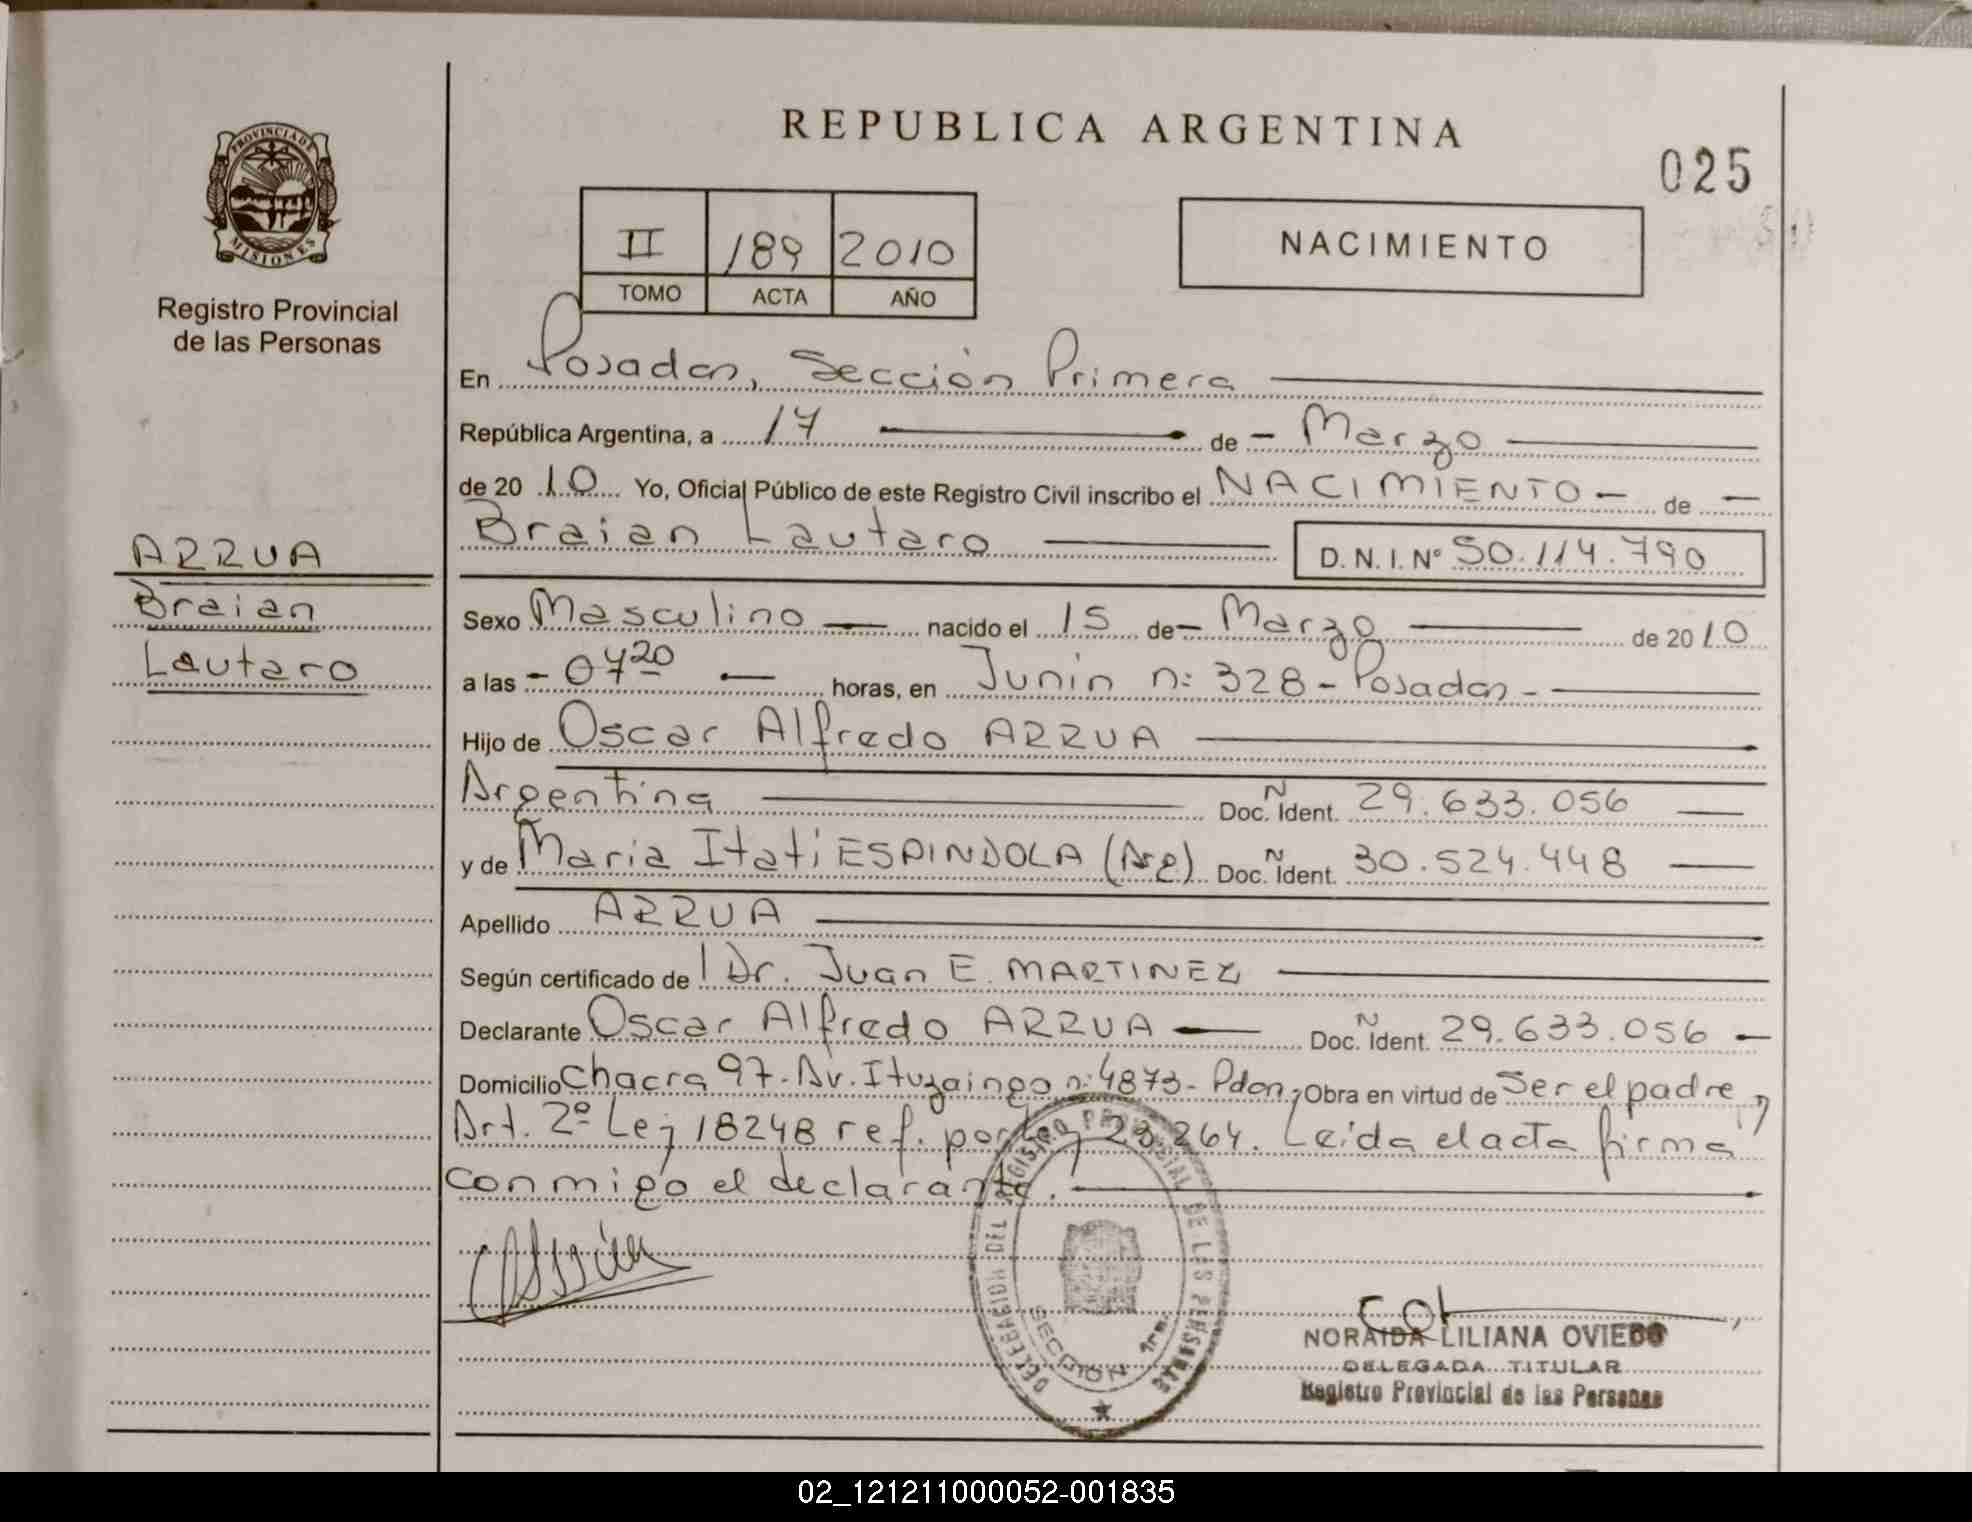 REPUBLICA ARGENTINA
025
PROVINCIA DE MISIONES
Registro Provincial
de las Personas
II 189 2010
TOMO ACTA AÑO
NACIMIENTO
En Posadas, Sección Primera
República Argentina, a 17 de Marzo
de 2010 Yo, Oficial Público de este Registro Civil inscribo el NACIMIENTO de
Braian Lautaro D.N.I. Nº 50.114.790
ARRUA
Braian
Lautaro
Sexo Masculino nacido el 15 de Marzo de 2010
a las 07 20 horas, en Junín n: 328 - Posadas -
Hijo de Oscar Alfredo ARRUA
Argentina Doc. Ñ Ident. 29.633.056
y de Maria Itati ESPINDOLA (Arg) Doc. Ñ Ident. 30.524.448
Apellido ARRUA
Según certificado de l Dr. Juan E. MARTINEZ
Declarante Oscar Alfredo ARRUA Doc. Ñ Ident. 29.633.056
Domicilio Chacra 97 - Av. Ituzaingo n: 4873 - Pdas, Obra en virtud de Ser el padre y
Art. 2º Ley 18248 ref. por Ley 23.264. Leida el acta firma
conmigo el declarante.
DELEGACION DEL REGISTRO PROVINCIAL DE LAS PERSONAS
SECCION 1ra.
NORAIDA LILIANA OVIEDO
DELEGADA TITULAR
Registro Provincial de las Personas
02_121211000052-001835